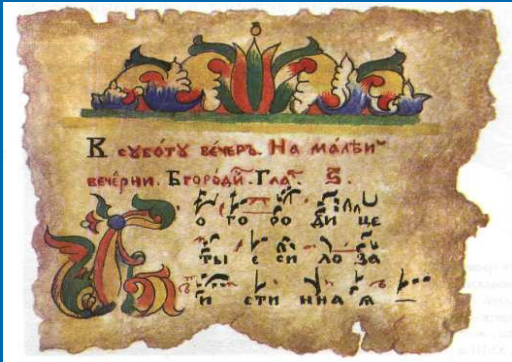 В субо́ту ве́черъ. На ма́лѣи
вече́рни. Бгоро́ди. Гла. Ѕ.
Бо го ро ди це
ты е си ло за
и сти нна я